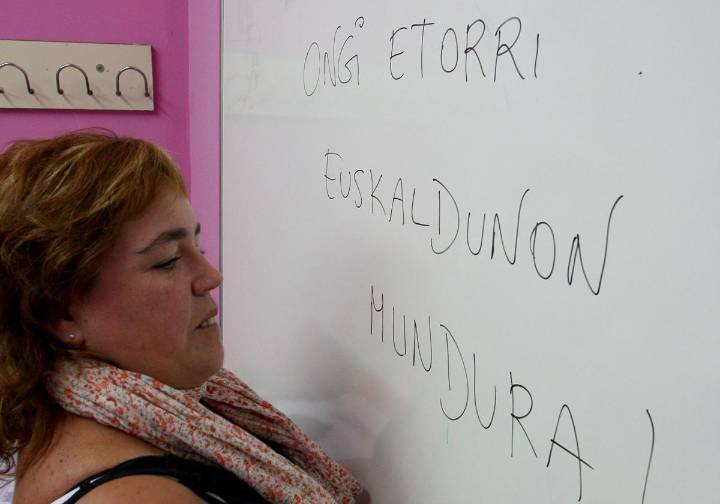 ONGi ETORRI
EUSKALDUNON
MUNDURA!